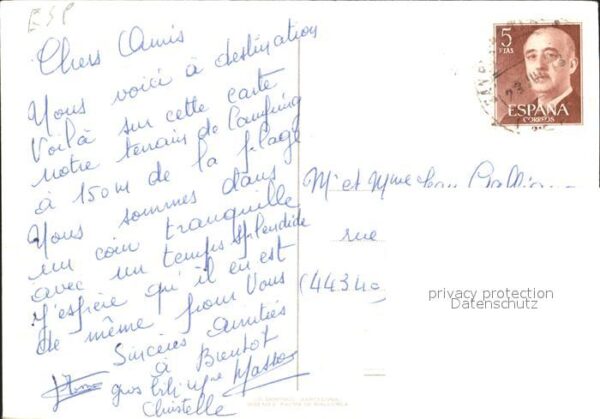 ESP
Chers Amis
Nous voici à destination
Voilà sur cette carte
notre terrain de Camping
à 150m de la plage
Nous sommes dans
un coin tranquille
avec un temps splendide
J'espère qu'il en est
de même pour Vous
Sincères amitiés
à Bientot
gros
Christelle
5
PTAS
ESPAÑA
CORREOS
Mr et Mme
rue
(44340
privacy protection
Datenschutz